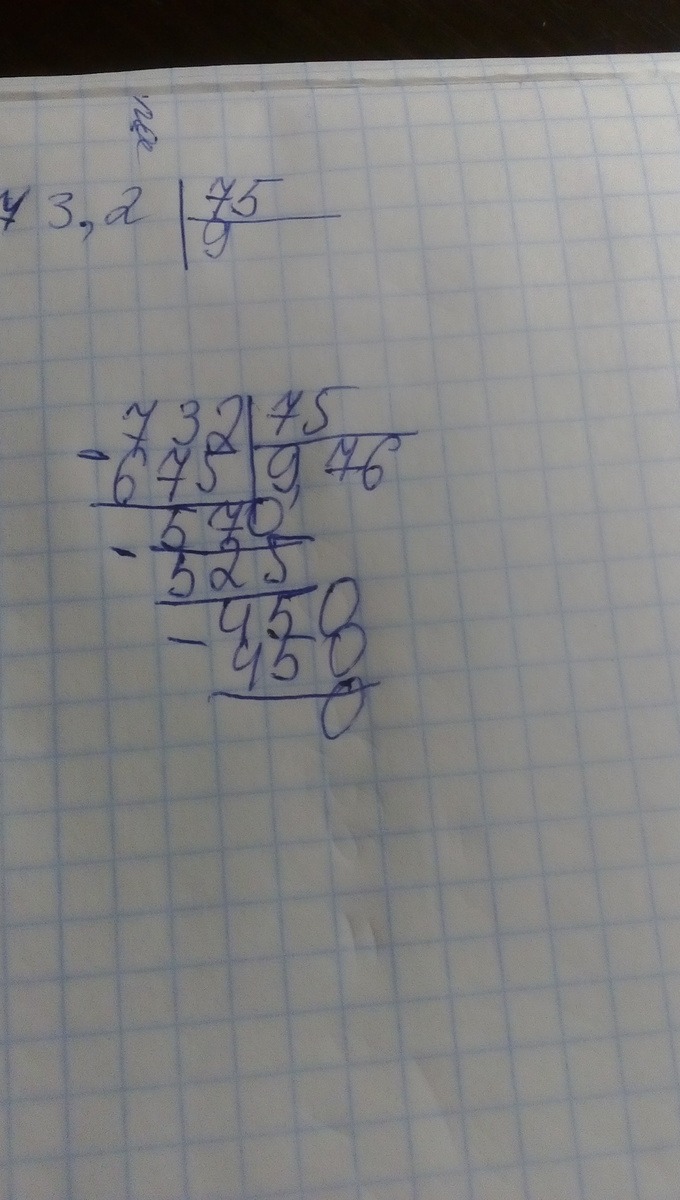 73,2 | 75
9
732 | 75
- 675 | 9,76
570
- 525
450
- 450
0